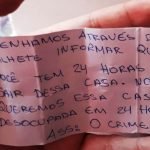 ENHAMOS ATRAVÉS D
LHETE INFORMAR QU
OCÊ TEM 24 HORAS
AIR DESSA CASA. NO
QUEREMOS ESSA CAS
DESOCUPADA EM 24 HO
ASS: O CRIME